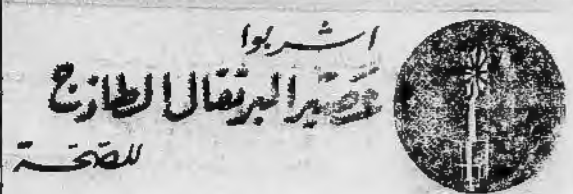 اشربوا
عصير البرتقال الطازج
للصحة